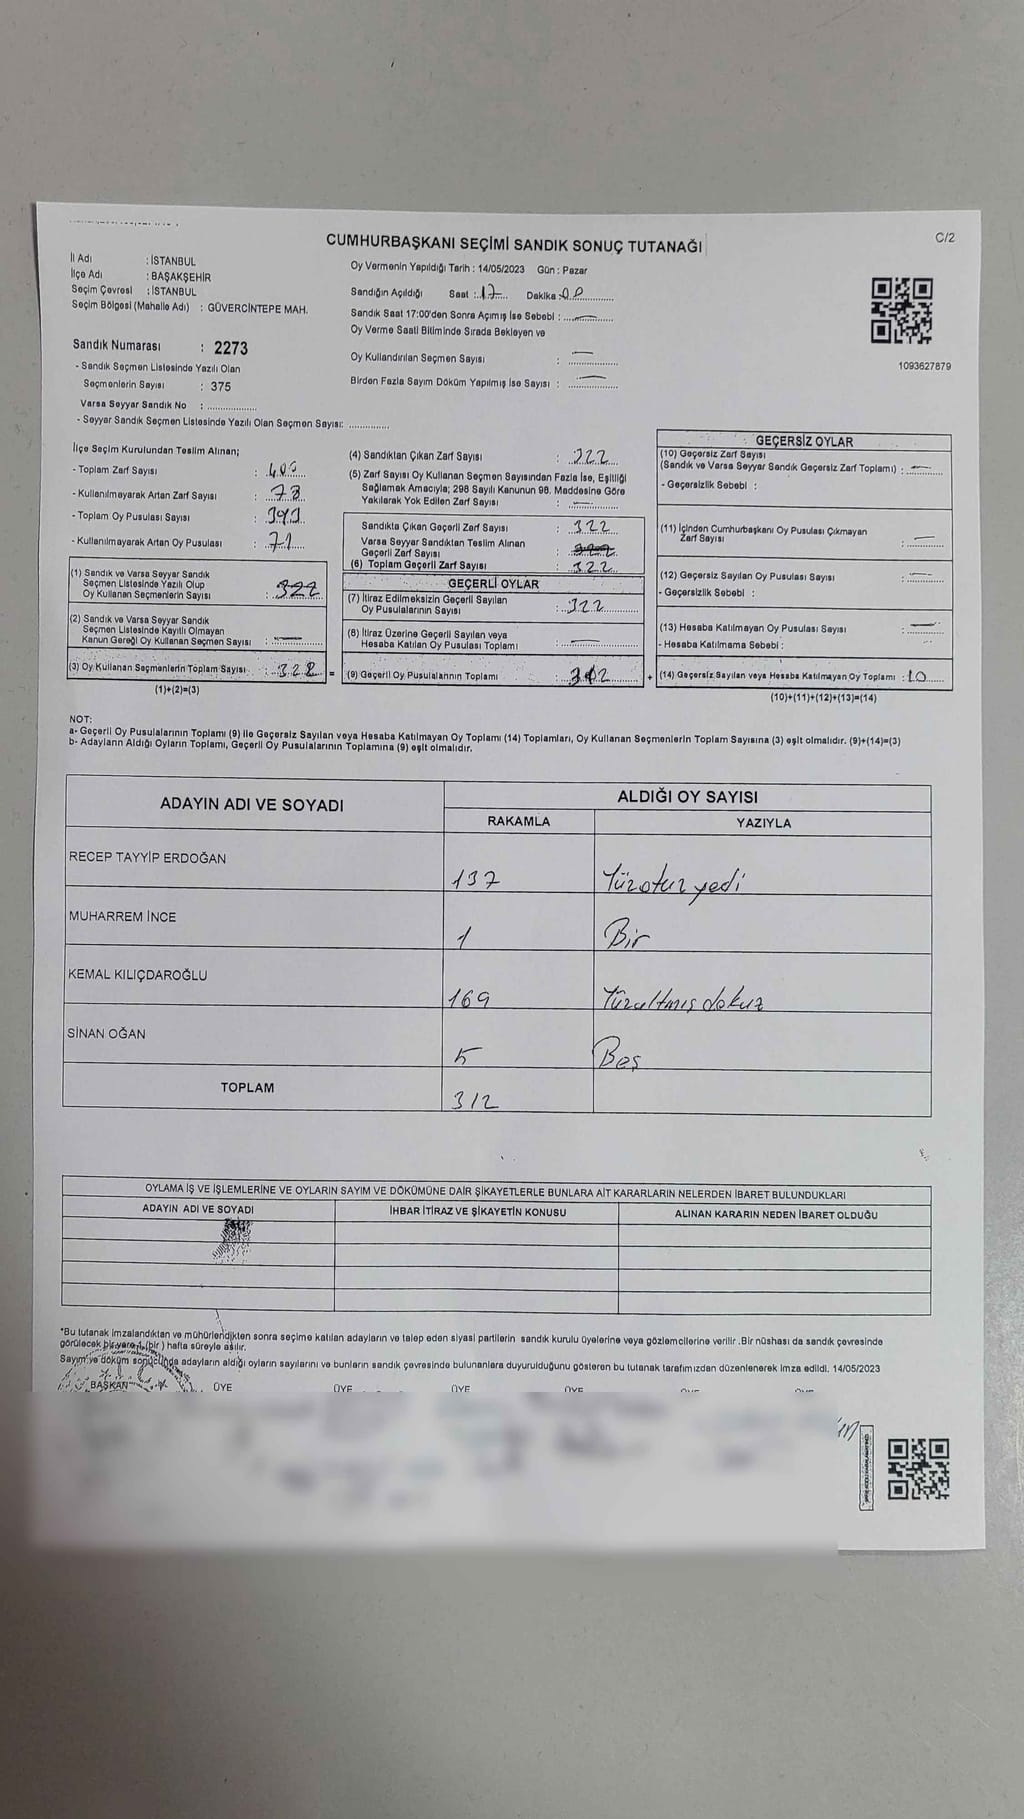 C/2
CUMHURBAŞKANI SEÇİMİ SANDIK SONUÇ TUTANAĞI
İl Adı : İSTANBUL
İlçe Adı : BAŞAKŞEHİR
Seçim Çevresi : İSTANBUL
Seçim Bölgesi (Mahalle Adı) : GÜVERCİNTEPE MAH.
Sandık Numarası : 2273
- Sandık Seçmen Listesinde Yazılı Olan
Seçmenlerin Sayısı : 375
Varsa Seyyar Sandık No :
- Seyyar Sandık Seçmen Listesinde Yazılı Olan Seçmen Sayısı:
Oy Vermenin Yapıldığı Tarih : 14/05/2023 Gün : Pazar
Sandığın Açıldığı Saat : 17 Dakika :
Sandık Saat 17:00'den Sonra Açımış İse Sebebi : —
Oy Verme Saati Bitiminde Sırada Bekleyen ve
Oy Kullandırılan Seçmen Sayısı : —
Birden Fazla Sayım Döküm Yapılmış İse Sayısı : —
1093627879
İlçe Seçim Kurulundan Teslim Alınan;
- Toplam Zarf Sayısı :
- Kullanılmayarak Artan Zarf Sayısı : 78
- Toplam Oy Pusulası Sayısı : 393
- Kullanılmayarak Artan Oy Pusulası : 71
(1) Sandık ve Varsa Seyyar Sandık
Seçmen Listesinde Yazılı Olup
Oy Kullanan Seçmenlerin Sayısı : 322
(2) Sandık ve Varsa Seyyar Sandık
Seçmen Listesinde Kayıtlı Olmayan
Kanun Gereği Oy Kullanan Seçmen Sayısı : —
(3) Oy Kullanan Seçmenlerin Toplam Sayısı : 322 =
(1)+(2)=(3)
(4) Sandıktan Çıkan Zarf Sayısı : 322
(5) Zarf Sayısı Oy Kullanan Seçmen Sayısından Fazla İse, Eşitliği
Sağlamak Amacıyla; 298 Sayılı Kanunun 98. Maddesine Göre
Yakılarak Yok Edilen Zarf Sayısı : —
Sandıkta Çıkan Geçerli Zarf Sayısı : 322
Varsa Seyyar Sandıktan Teslim Alınan
Geçerli Zarf Sayısı :
(6) Toplam Geçerli Zarf Sayısı : 322
GEÇERLİ OYLAR
(7) İtiraz Edilmeksizin Geçerli Sayılan
Oy Pusulalarının Sayısı : 322
(8) İtiraz Üzerine Geçerli Sayılan veya
Hesaba Katılan Oy Pusulası Toplamı : —
(9) Geçerli Oy Pusulalarının Toplamı : 312 +
GEÇERSİZ OYLAR
(10) Geçersiz Zarf Sayısı
(Sandık ve Varsa Seyyar Sandık Geçersiz Zarf Toplamı) : —
- Geçersizlik Sebebi :
(11) İçinden Cumhurbaşkanı Oy Pusulası Çıkmayan
Zarf Sayısı : —
(12) Geçersiz Sayılan Oy Pusulası Sayısı : —
- Geçersizlik Sebebi :
(13) Hesaba Katılmayan Oy Pusulası Sayısı : —
- Hesaba Katılmama Sebebi :
(14) Geçersiz Sayılan veya Hesaba Katılmayan Oy Toplamı : 10
(10)+(11)+(12)+(13)=(14)
NOT:
a- Geçerli Oy Pusulalarının Toplamı (9) ile Geçersiz Sayılan veya Hesaba Katılmayan Oy Toplamı (14) Toplamları, Oy Kullanan Seçmenlerin Toplam Sayısına (3) eşit olmalıdır. (9)+(14)=(3)
b- Adayların Aldığı Oyların Toplamı, Geçerli Oy Pusulalarının Toplamına (9) eşit olmalıdır.
ADAYIN ADI VE SOYADI ALDIĞI OY SAYISI
RAKAMLA YAZIYLA
RECEP TAYYİP ERDOĞAN 137 Yüzotuz yedi
MUHARREM İNCE 1 Bir
KEMAL KILIÇDAROĞLU 169 Yüzaltmış dokuz
SİNAN OĞAN 5 Beş
TOPLAM 312
OYLAMA İŞ VE İŞLEMLERİNE VE OYLARIN SAYIM VE DÖKÜMÜNE DAİR ŞİKAYETLERLE BUNLARA AİT KARARLARIN NELERDEN İBARET BULUNDUKLARI
ADAYIN ADI VE SOYADI İHBAR İTİRAZ VE ŞİKAYETİN KONUSU ALINAN KARARIN NEDEN İBARET OLDUĞU
*Bu tutanak imzalandıktan ve mühürlendikten sonra seçime katılan adayların ve talep eden siyasi partilerin sandık kurulu üyelerine veya gözlemcilerine verilir .Bir nüshası da sandık çevresinde
görülecek bir yere 1 (bir ) hafta süreyle asılır.
Sayım ve döküm sonucunda adayların aldığı oyların sayılarını ve bunların sandık çevresinde bulunanlara duyurulduğunu gösteren bu tutanak tarafımızdan düzenlenerek imza edildi. 14/05/2023
BAŞKAN ÜYE ÜYE ÜYE ÜYE